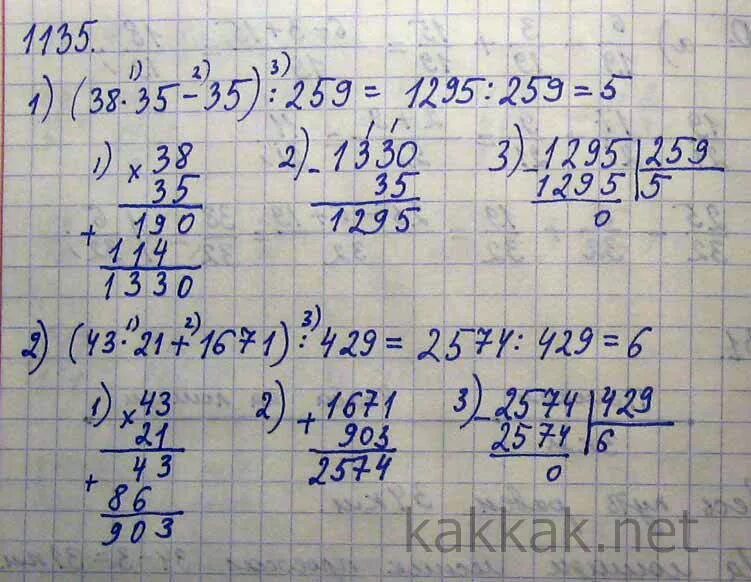 1135.
1) (38 · 35 - 35) : 259 = 1295 : 259 = 5
1) 2) 3)
1) × 38
35
+ 190
114
1330
2) - 1330
35
1295
3) - 1295 | 259
1295 | 5
0
2) (43 · 21 + 1671) : 429 = 2574 : 429 = 6
1) 2) 3)
1) × 43
21
+ 43
86
903
2) + 1671
903
2574
3) - 2574 | 429
2574 | 6
0
kakkak.net